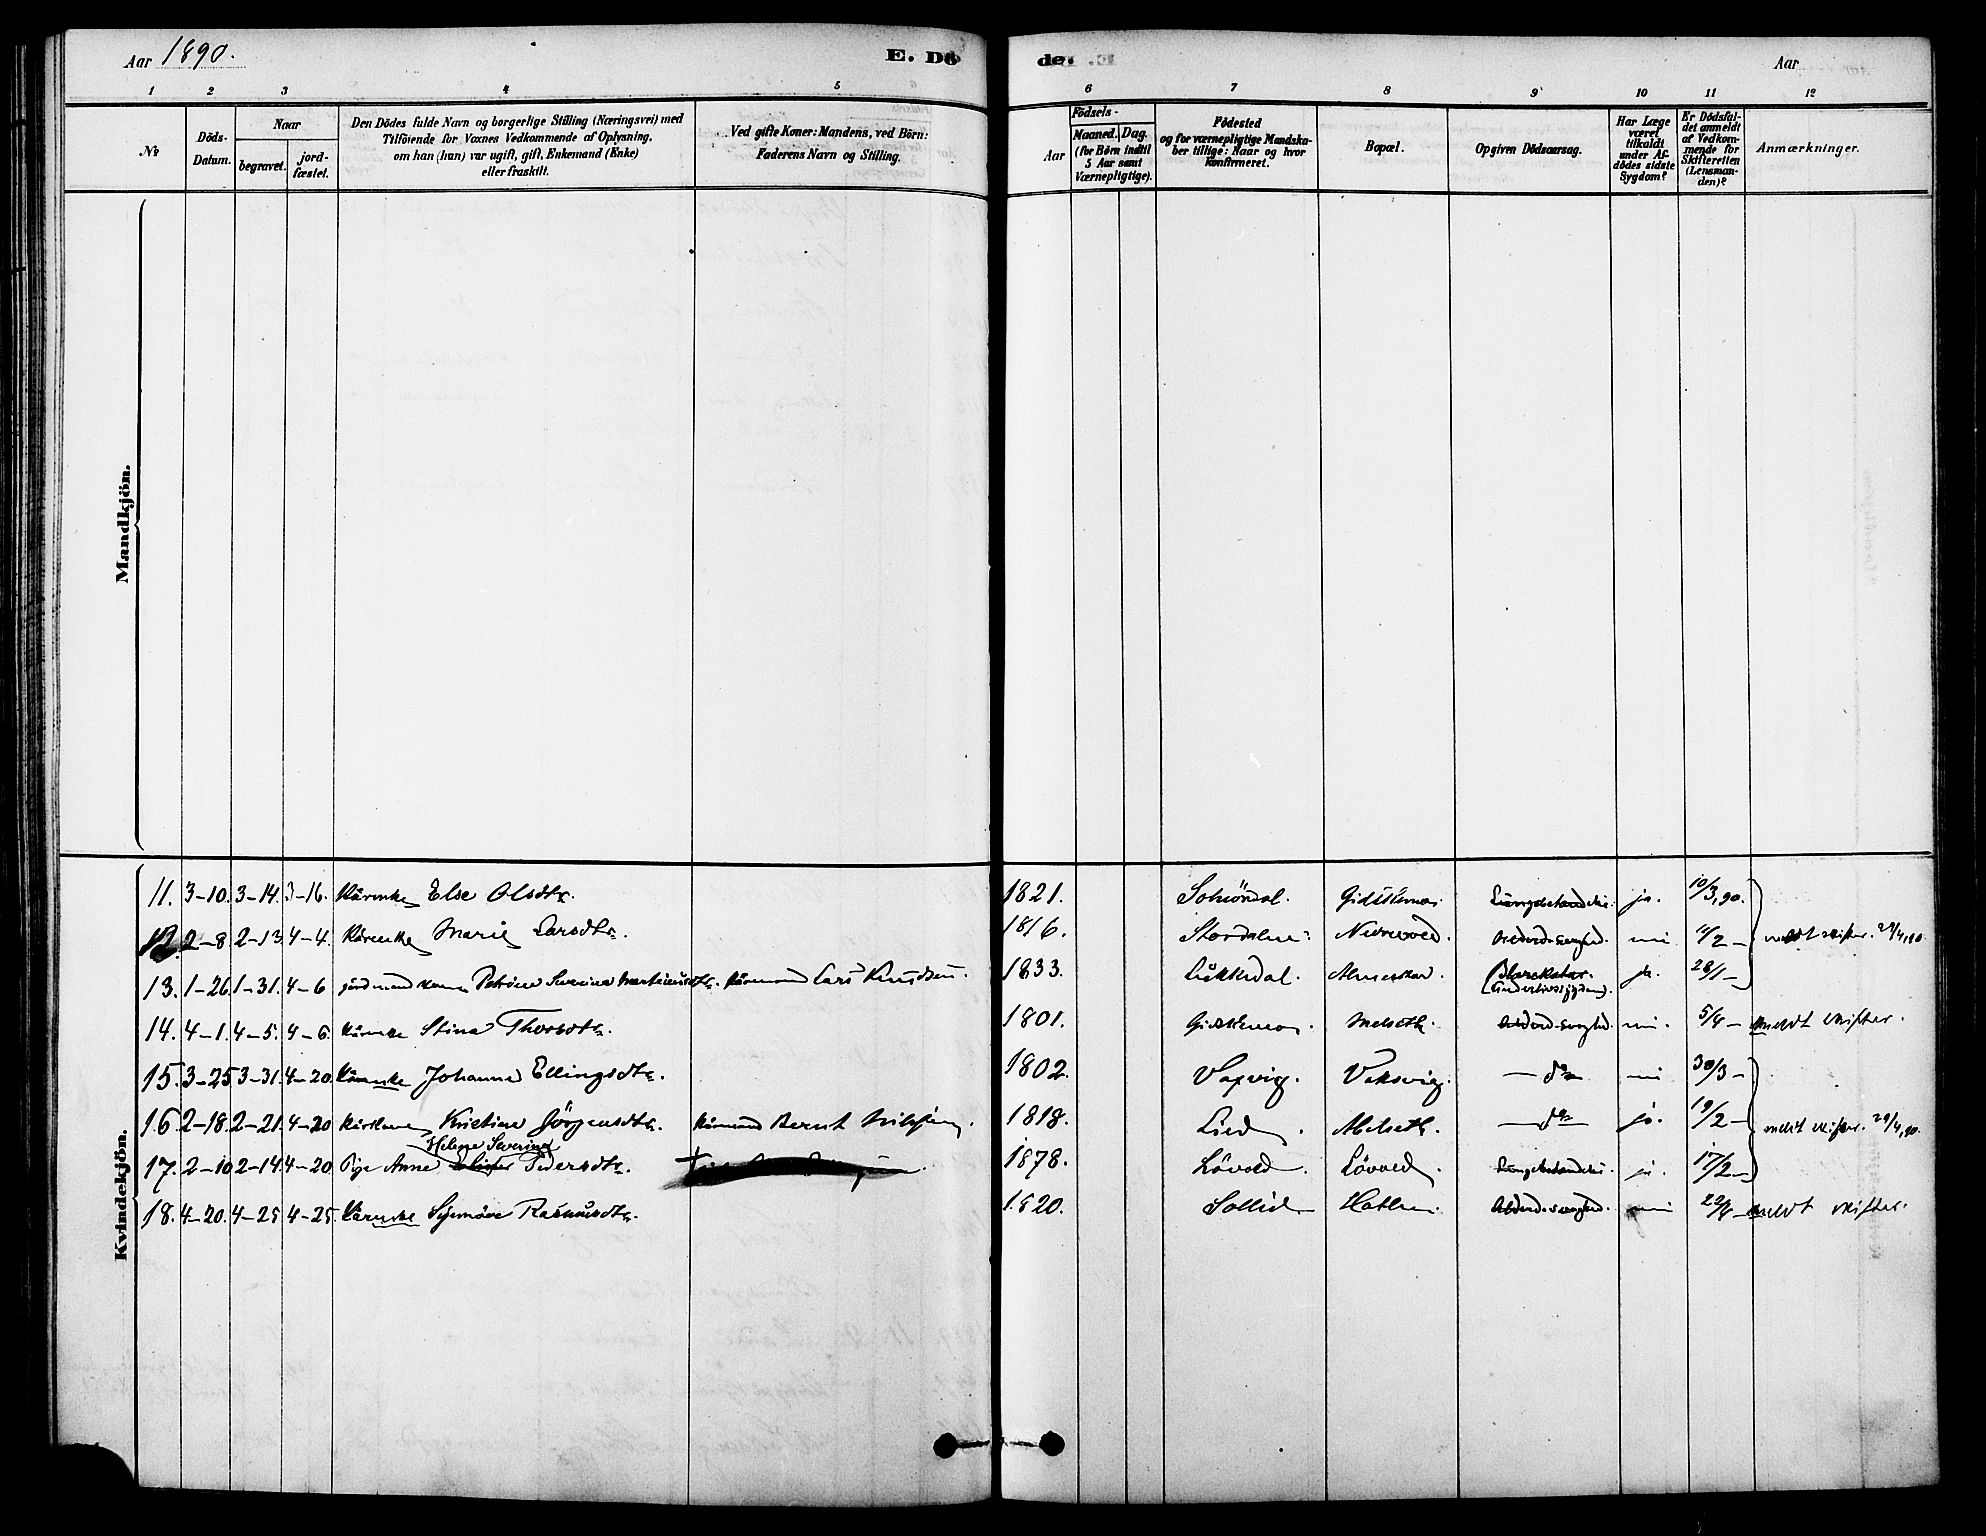 Aar 1890.
E. Dö
de.
Aar
1 2 3 4 5
6 7 8 9 10 11 12
№
Döds-Datum.
Naar
begravet.
jord-fæstet.
Den Dödes fulde Navn og borgerlige Stilling (Næringsvei) med
Tilföiende for Voxnes Vedkommende af Oplysning,
om han (hun) var ugift, gift, Enkemand (Enke)
eller fraskilt.
Ved gifte Koner: Mandens, ved Börn:
Faderens Navn og Stilling.
Födsels-
Aar
Maaned. Dag.
(for Börn indtil
5 Aar samt
Værnepligtige).
Födested
og for værnepligtige Mandska-
ber tillige: Naar og hvor
konfirmeret.
Bopæl.
Opgiven Dödsaarsag.
Har Læge
været
tilkaldt
under Af-
dödes sidste
Sygdom?
Er Dödsfal-
det anmeldt
af Vedkom-
mende for
Skifteretten
(Lensman-
den)?
Anmærkninger.
Mandkjön.
Kvindekjön.
11. 3-10. 3-14. 3-16. Kårenke Else Olsdtr. 1821. ja. 10/3,90.
12. 2-8. 2-13. 4-4. Kårenke Marie Larsdtr. 1816. Stordalen. Alderd.svaghed. 11/2 - meldt skifter. 29/4,90.
13. 1-26. 1-31. 4-6 Petrine Severine Martinusdtr. Kårmand Lars Knudsen. 1833. Lükkedal. ja. 28/1 -
14. 4-1. 4-5. 4-6 Kårenke Stina Thorsdtr. 1801. Melseth. Alderd.svaghed. 5/4 - meldt skifter.
15. 3-25 3-31. 4-20. Kårenke Johanne Ellingsdtr. 1802. Vaxvig. Vaksvig. - do - 30/3 -
16. 2-18. 2-21. 4-20 Kristine Jörgensdtr. Kårmand Bernt 1818. Lied. Melseth. - do - ja. 19/2 - meldt skifter. 29/4,90.
Helene Severine
17. 2-10. 2-14. 4-20. Pige Anne Pedersdtr. 1878. Lövold. Lövold. ja. 17/2 -
18. 4-20. 4-25 4-25. Kårenke Synnöve Rasmusdtr. 1820. Sollid Hatlen. Alderd.svaghed. 22/4 - meldt skifter.